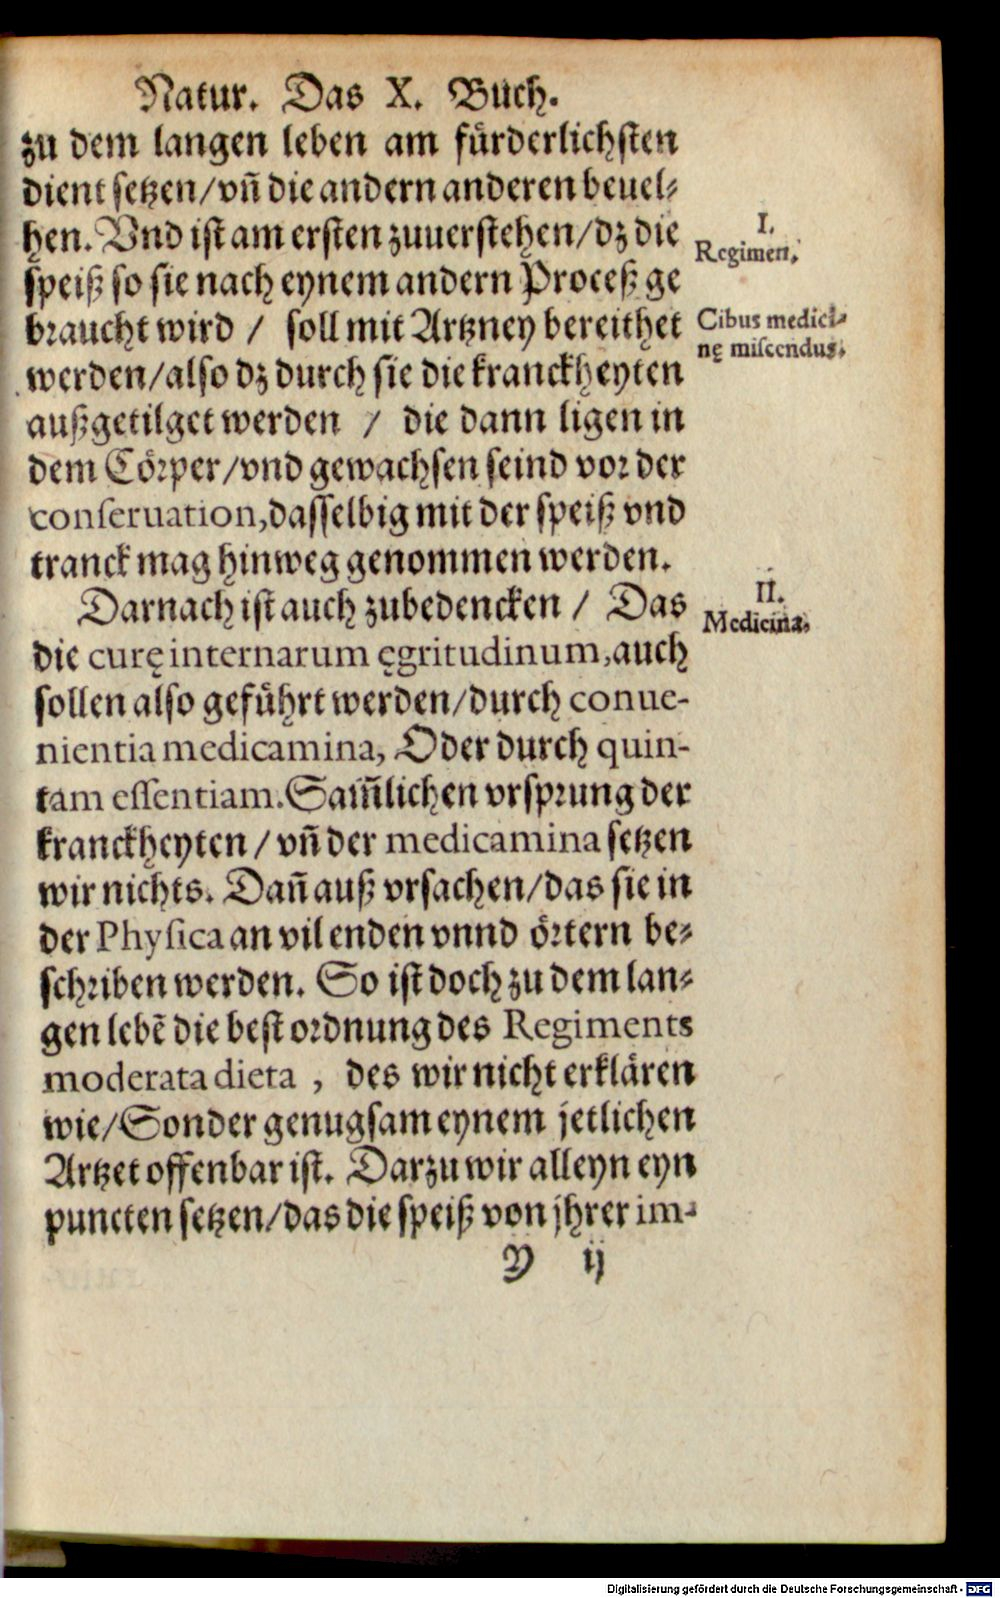 Natur. Das X. Buͦch.
zu dem langen leben am fürderlichsten
dient setzen/vñ die andern anderen beuel⸗
hen. Vnd ist am ersten zuuerstehen/dz die
I.
Regimen.
speiß so sie nach eynem andern Proceß ge
braucht wird / soll mit Artzney bereithet
Cibus medici⸗
nę miscendus.
werden/also dz durch sie die kranckheyten
außgetilget werden / die dann ligen in
dem Cörper/vnd gewachsen seind vor der
conseruation,dasselbig mit der speiß vnd
tranck mag hinweg genommen werden.
Darnach ist auch zubedencken / Das
II.
Medicina.
die curę internarum ęgritudinum,auch
sollen also geführt werden/durch conue-
nientia medicamina, Oder durch quin-
tam essentiam. Sam̃lichen vrsprung der
kranckheyten / vñ der medicamina setzen
wir nichts. Dañ auß vrsachen/das sie in
der Physica an vil enden vnnd örtern be⸗
schriben werden. So ist doch zu dem lan⸗
gen lebẽ die best ordnung des Regiments
moderata dieta , des wir nicht erklären
wie/Sonder genugsam eynem jetlichen
Artzet offenbar ist. Darzu wir alleyn eyn
puncten setzen/das die speiß von jhrer im⸗
Y ij
Digitalisierung gefördert durch die Deutsche Forschungsgemeinschaft - DFG